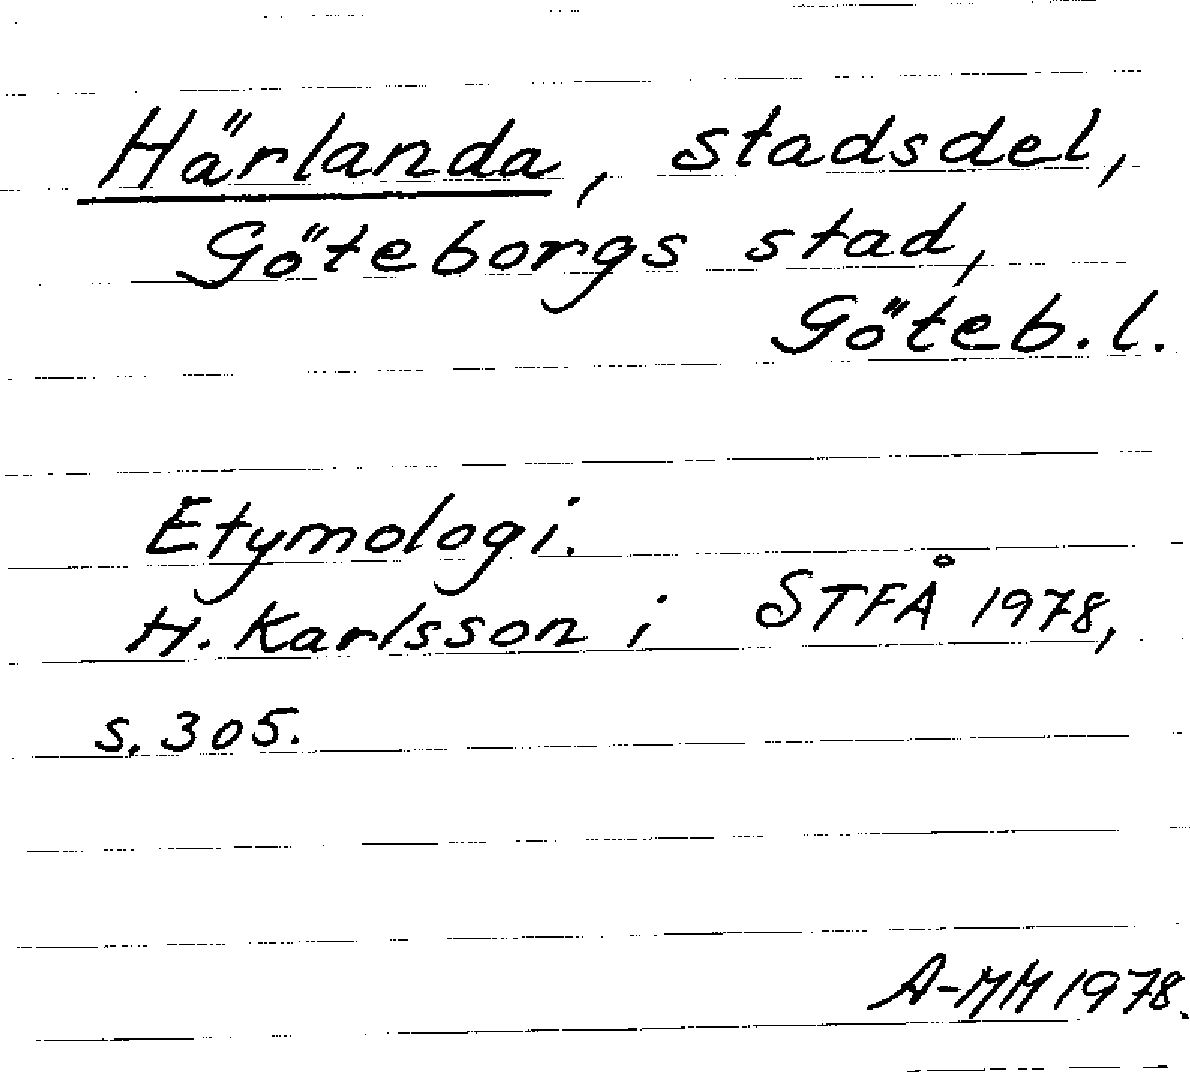 Härlanda, stadsdel,
Göteborgs stad,
Göteb.l.
Etymologi.
H. Karlsson i STFÅ 1978,
s. 305.
A-MM 1978.